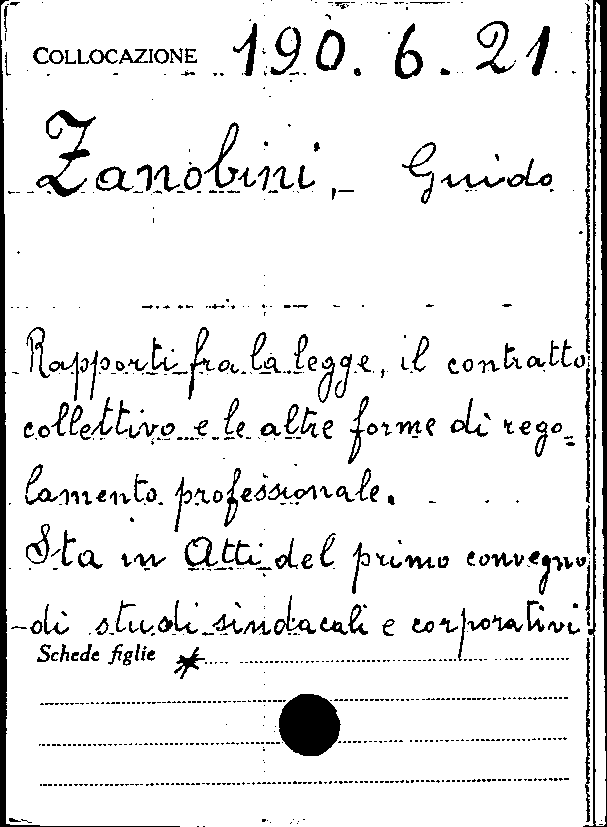 COLLOCAZIONE 190. 6. 21
Zanobini, Guido
Rapporti fra la legge, il contratto
collettivo e le altre forme di rego=
lamento professionale.
Sta in Atti del primo convegno
di studi sindacali e corporativi.
Schede figlie *